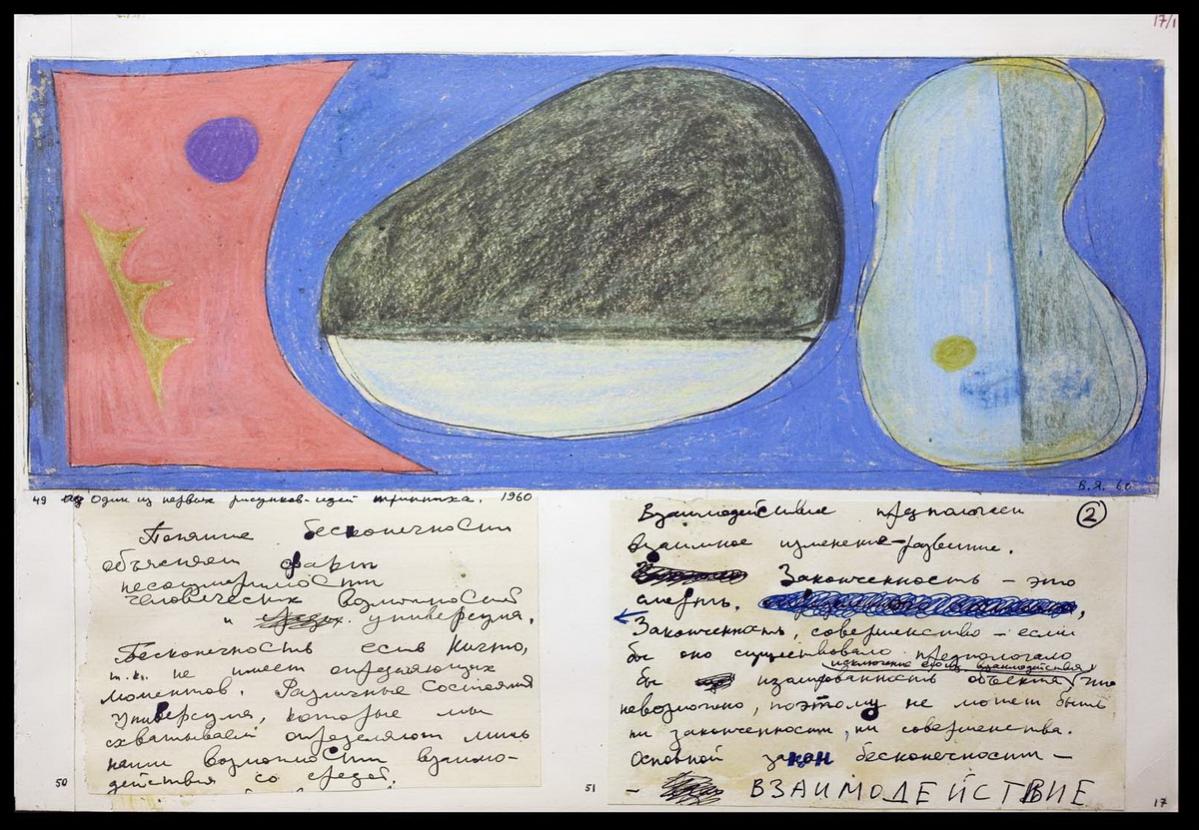 17/1
В.Я. 60
49 Один из первых рисунков-идей триптиха. 1960
Понятие бесконечности
объясняет факт
несоизмеримости
человеческих возможностей
и универсума.
Бесконечность есть Ничто,
т.к. не имеет определяющих
моментов. Различные состояния
универсума, которые мы
схватываем определяют лишь
наши возможности взаимо-
действия со средой.
50
Взаимодействие предполагает
2
взаимное изменение-развитие.
Законченность – это
смерть.
Законченность, совершенство – если
бы оно существовало предполагало
исключение своих взаимодействия
бы изолированность объекта, что
невозможно, поэтому не может быть
ни законченности, ни совершенства.
Основной закон бесконечности –
– ВЗАИМОДЕЙСТВИЕ
51
17